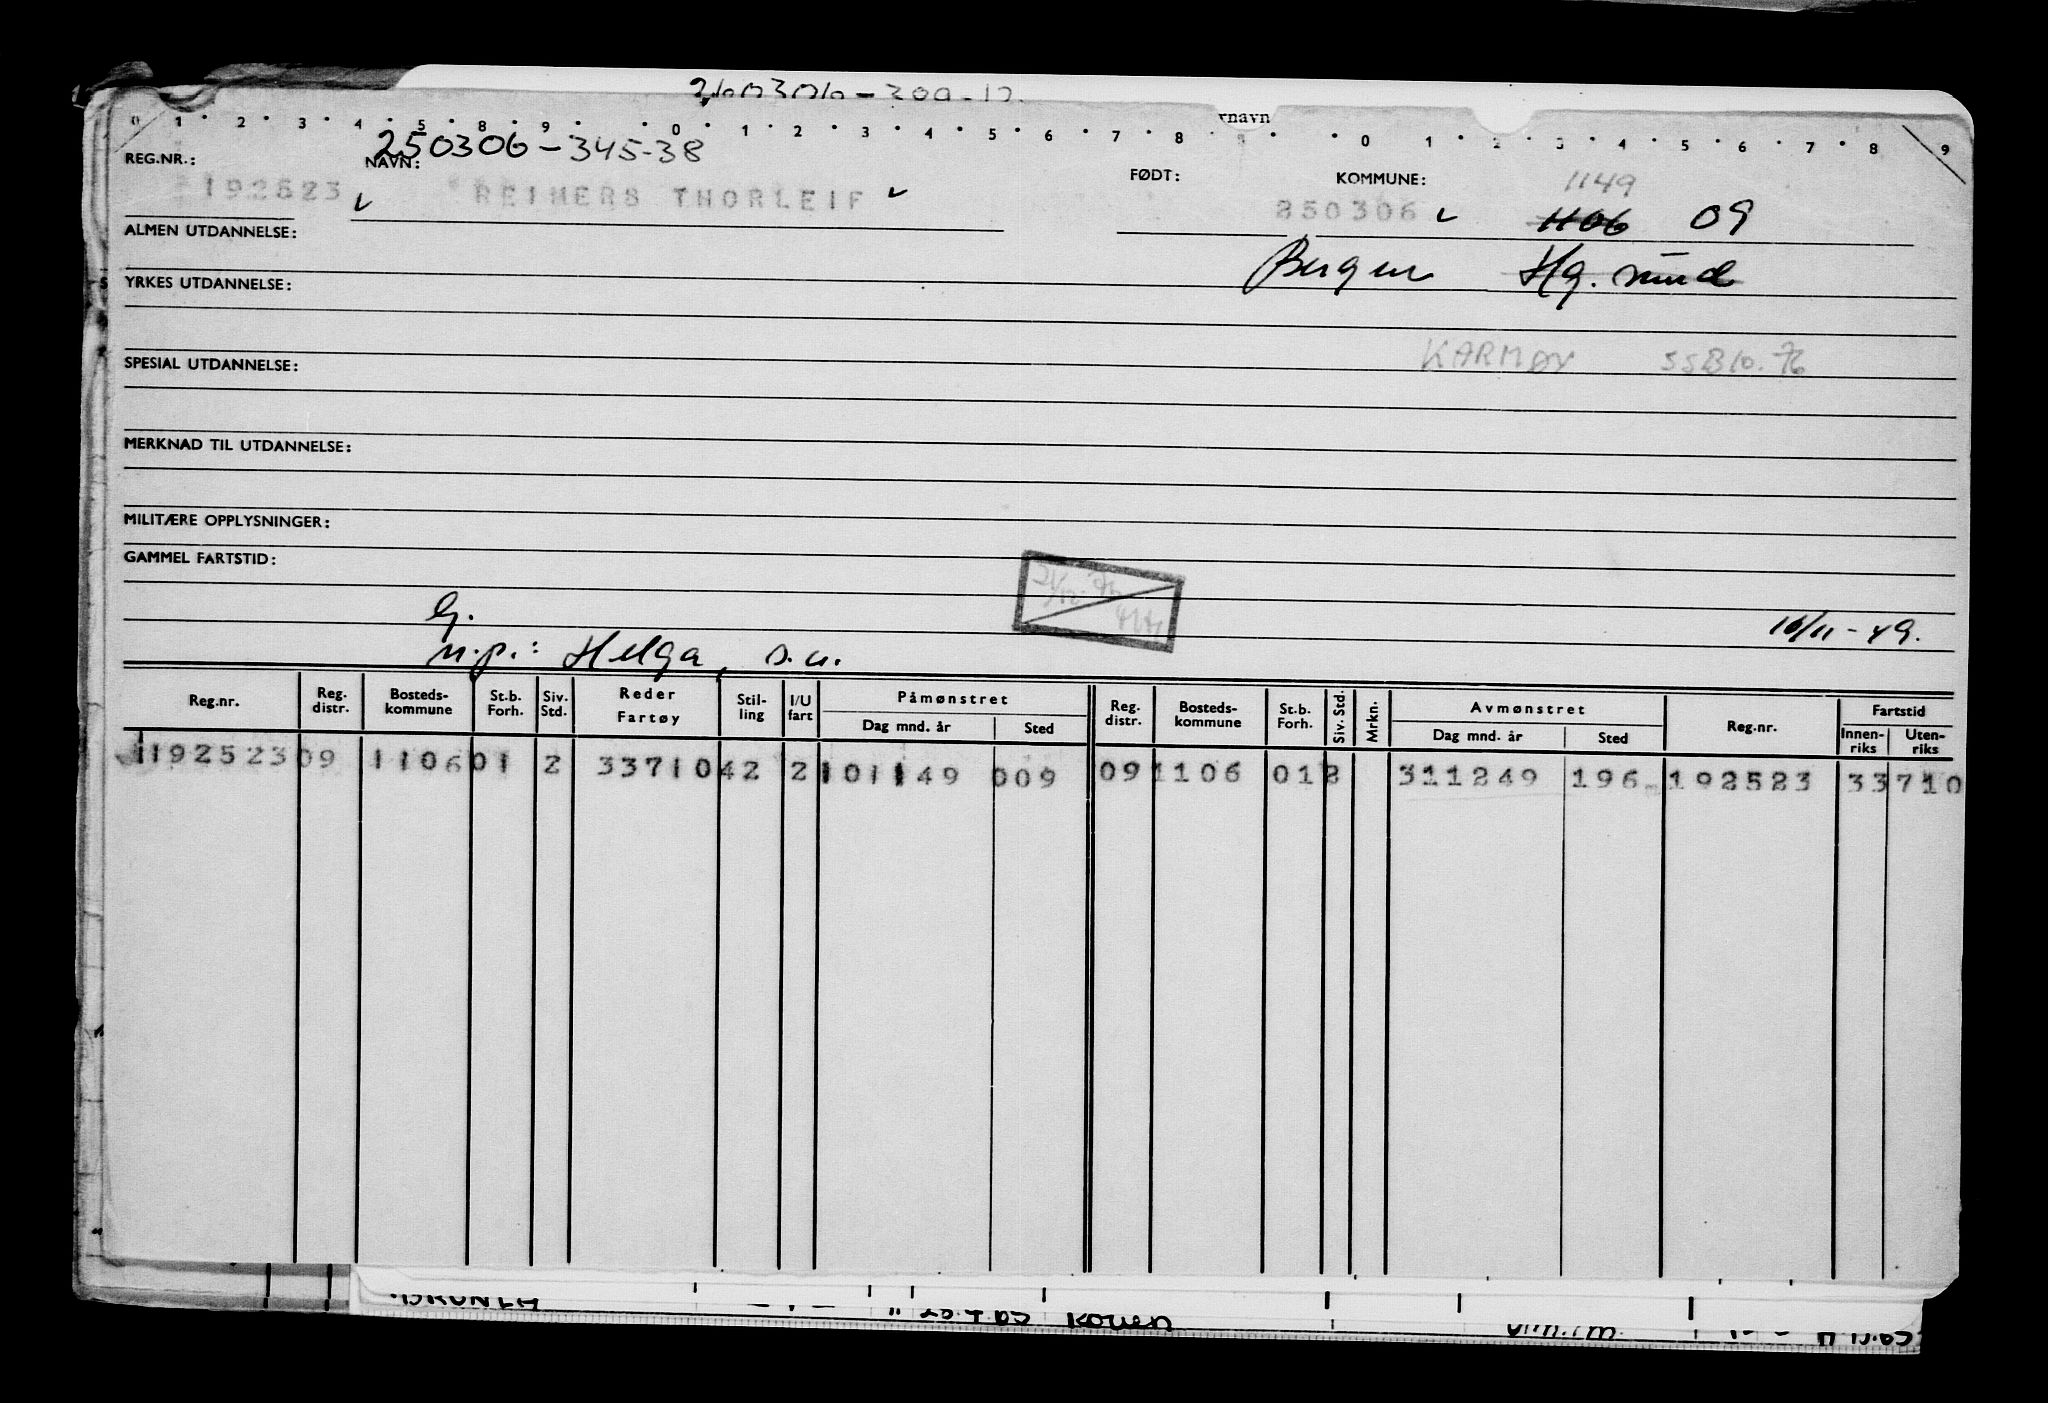 rnavn
0 1 2 3 4 5 8 9 0 1 2 3 4 5 6 7 8 9 0 1 2 3 4 5 6 7 8 9
250306-345-38
REG.NR.: NAVN: FØDT: KOMMUNE: 1149
192523 REIMERS THORLEIF 250306 1106 09
ALMEN UTDANNELSE:
Bergen Hg.sund
YRKES UTDANNELSE:
KARMØY SSB 10.76
SPESIAL UTDANNELSE:
MERKNAD TIL UTDANNELSE:
MILITÆRE OPPLYSNINGER:
GAMMEL FARTSTID:
G.
16/11-49.
n.p.: Helga, s.u.
Reg.nr. Reg. distr. Bosteds-kommune St.b. Forh. Siv. Std. Reder Fartøy Stil-ling I/U fart Påmønstret Dag mnd. år Sted Reg. distr. Bosteds-kommune St.b. Forh. Siv. Std. Mrkn. Avmønstret Dag mnd. år Sted Reg.nr. Fartstid Innen-riks Uten-riks
1192523 09 1106 01 2 33710 42 2 101149 009 09 1106 01 2 311249 196 192523 33710